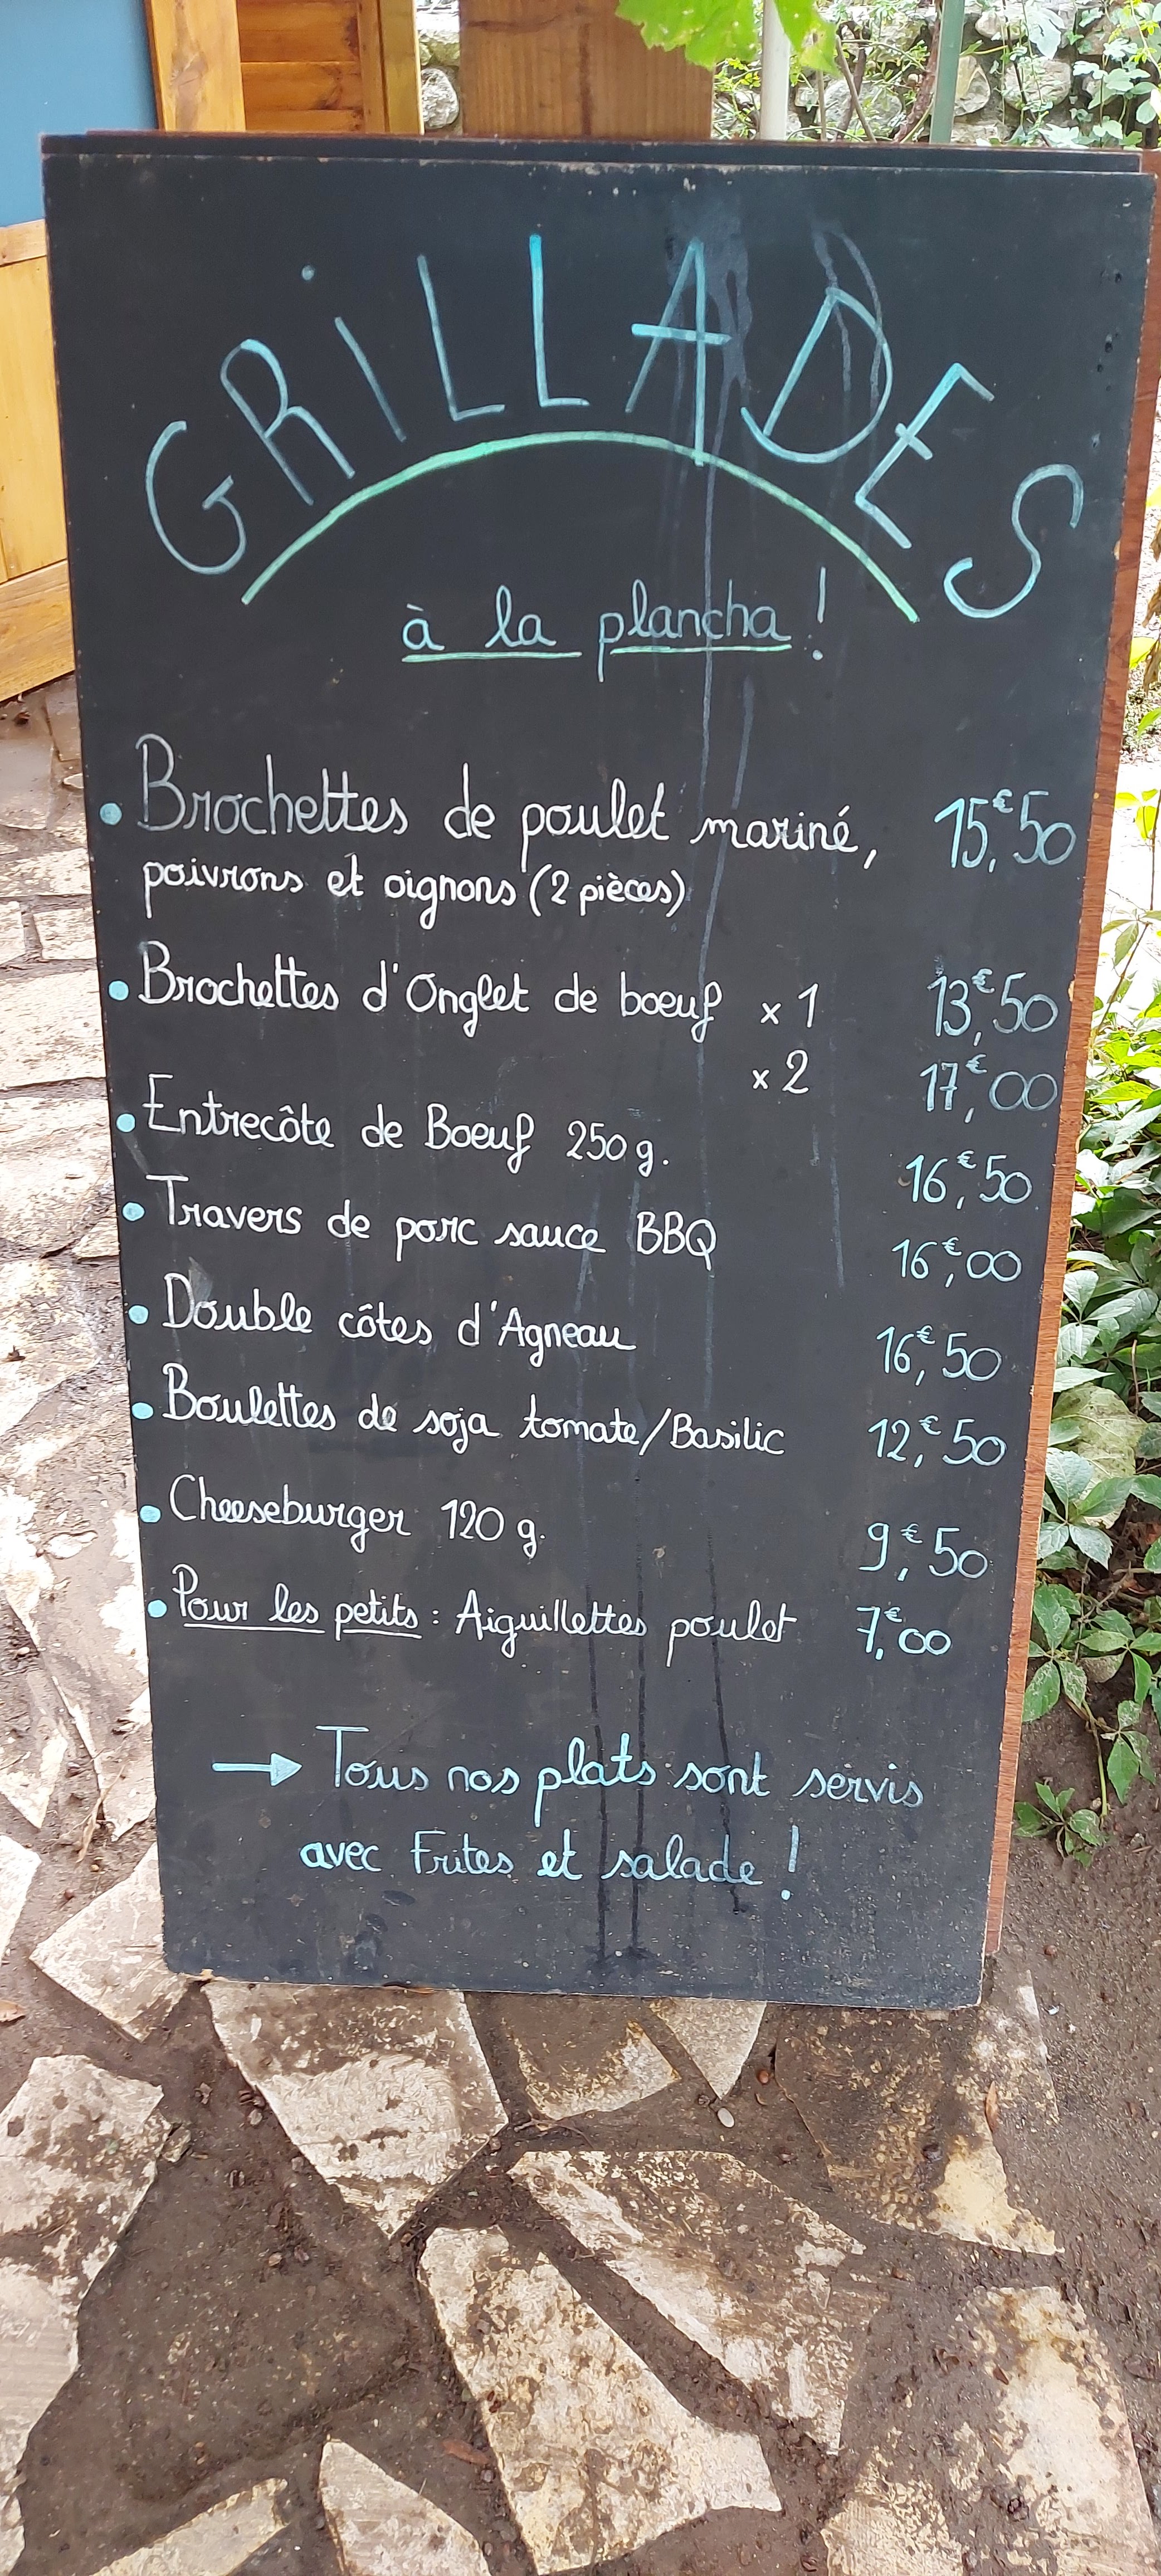 GRiLLADES
à la plancha !
• Brochettes de poulet mariné, 15,€50
poivrons et oignons (2 pièces)
• Brochettes d'Onglet de boeuf x 1 13,€50
x 2 17,€00
• Entrecôte de Boeuf 250 g. 16,€50
• Travers de porc sauce BBQ 16,€00
• Double côtes d'Agneau 16,€50
• Boulettes de soja tomate/Basilic 12,€50
• Cheeseburger 120 g. 9,€50
• Pour les petits : Aiguillettes poulet 7,€00
→ Tous nos plats sont servis
avec Frites et salade !